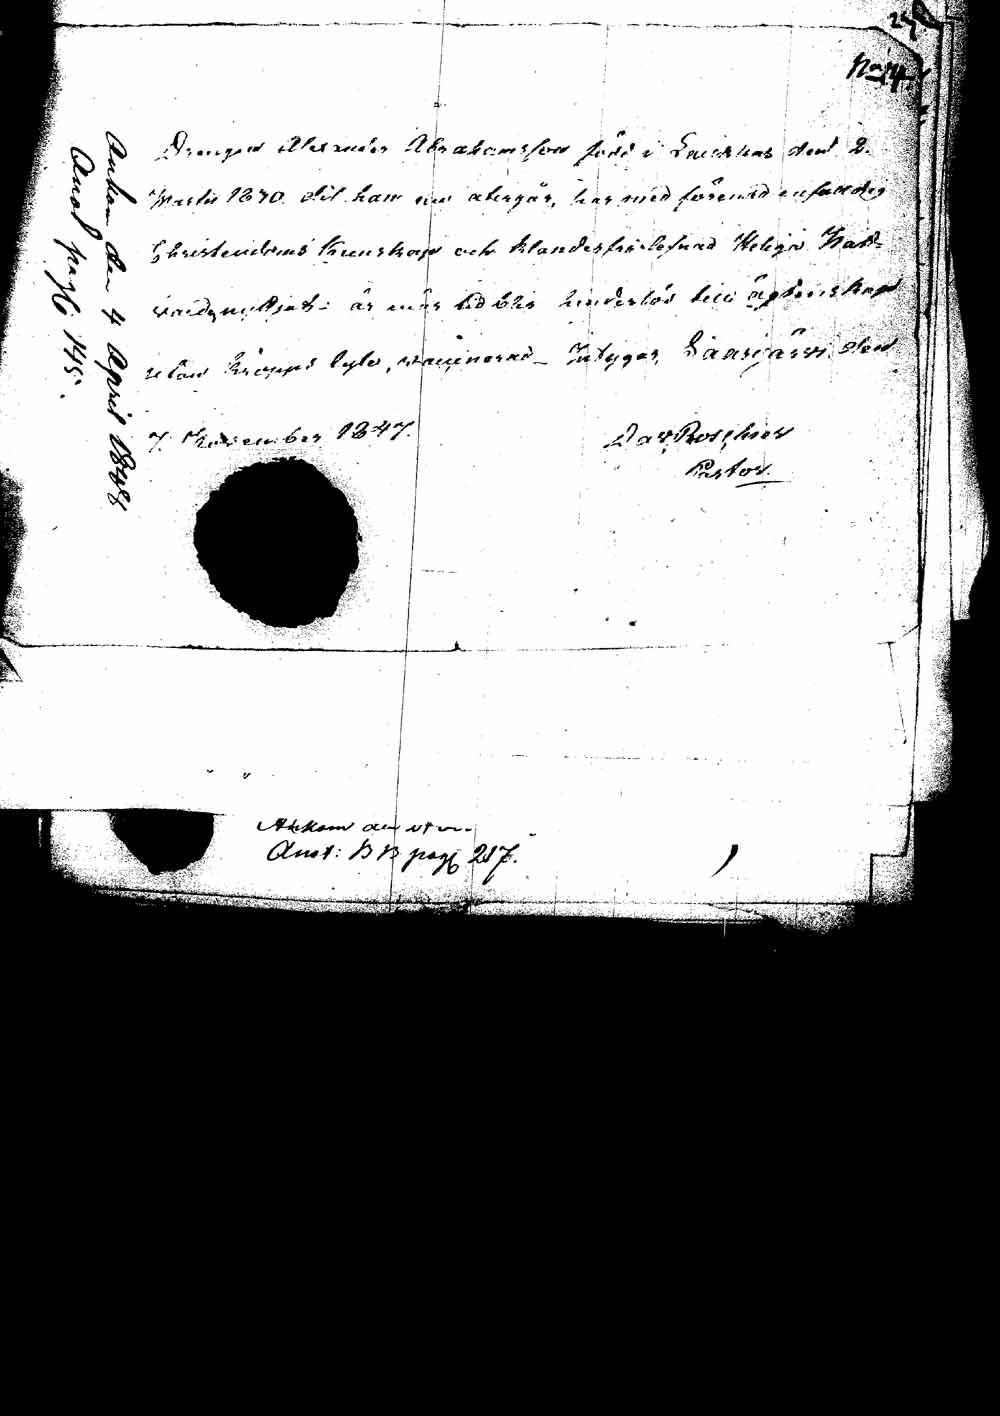 No 14.
Drengen Alexander Abrahamsson född i Laukkas den 2.
Martii 1830 dit han nu atergår, har med försvarlig enfaldig
Christendoms kunskap och klanderfri lefnad Heliga Natt-
vard, nyttjat: är mig vid blir hinderlös till ägtenskap
utan kropps lyte, vaccinerad _ Intygar, Saarijärvi den
7. November 1847.
Dav. Roschier
Pastor.
Ankom den 4 April 1848
Anot. pag: 145.
Ankom den
Anot: BB pag 217.